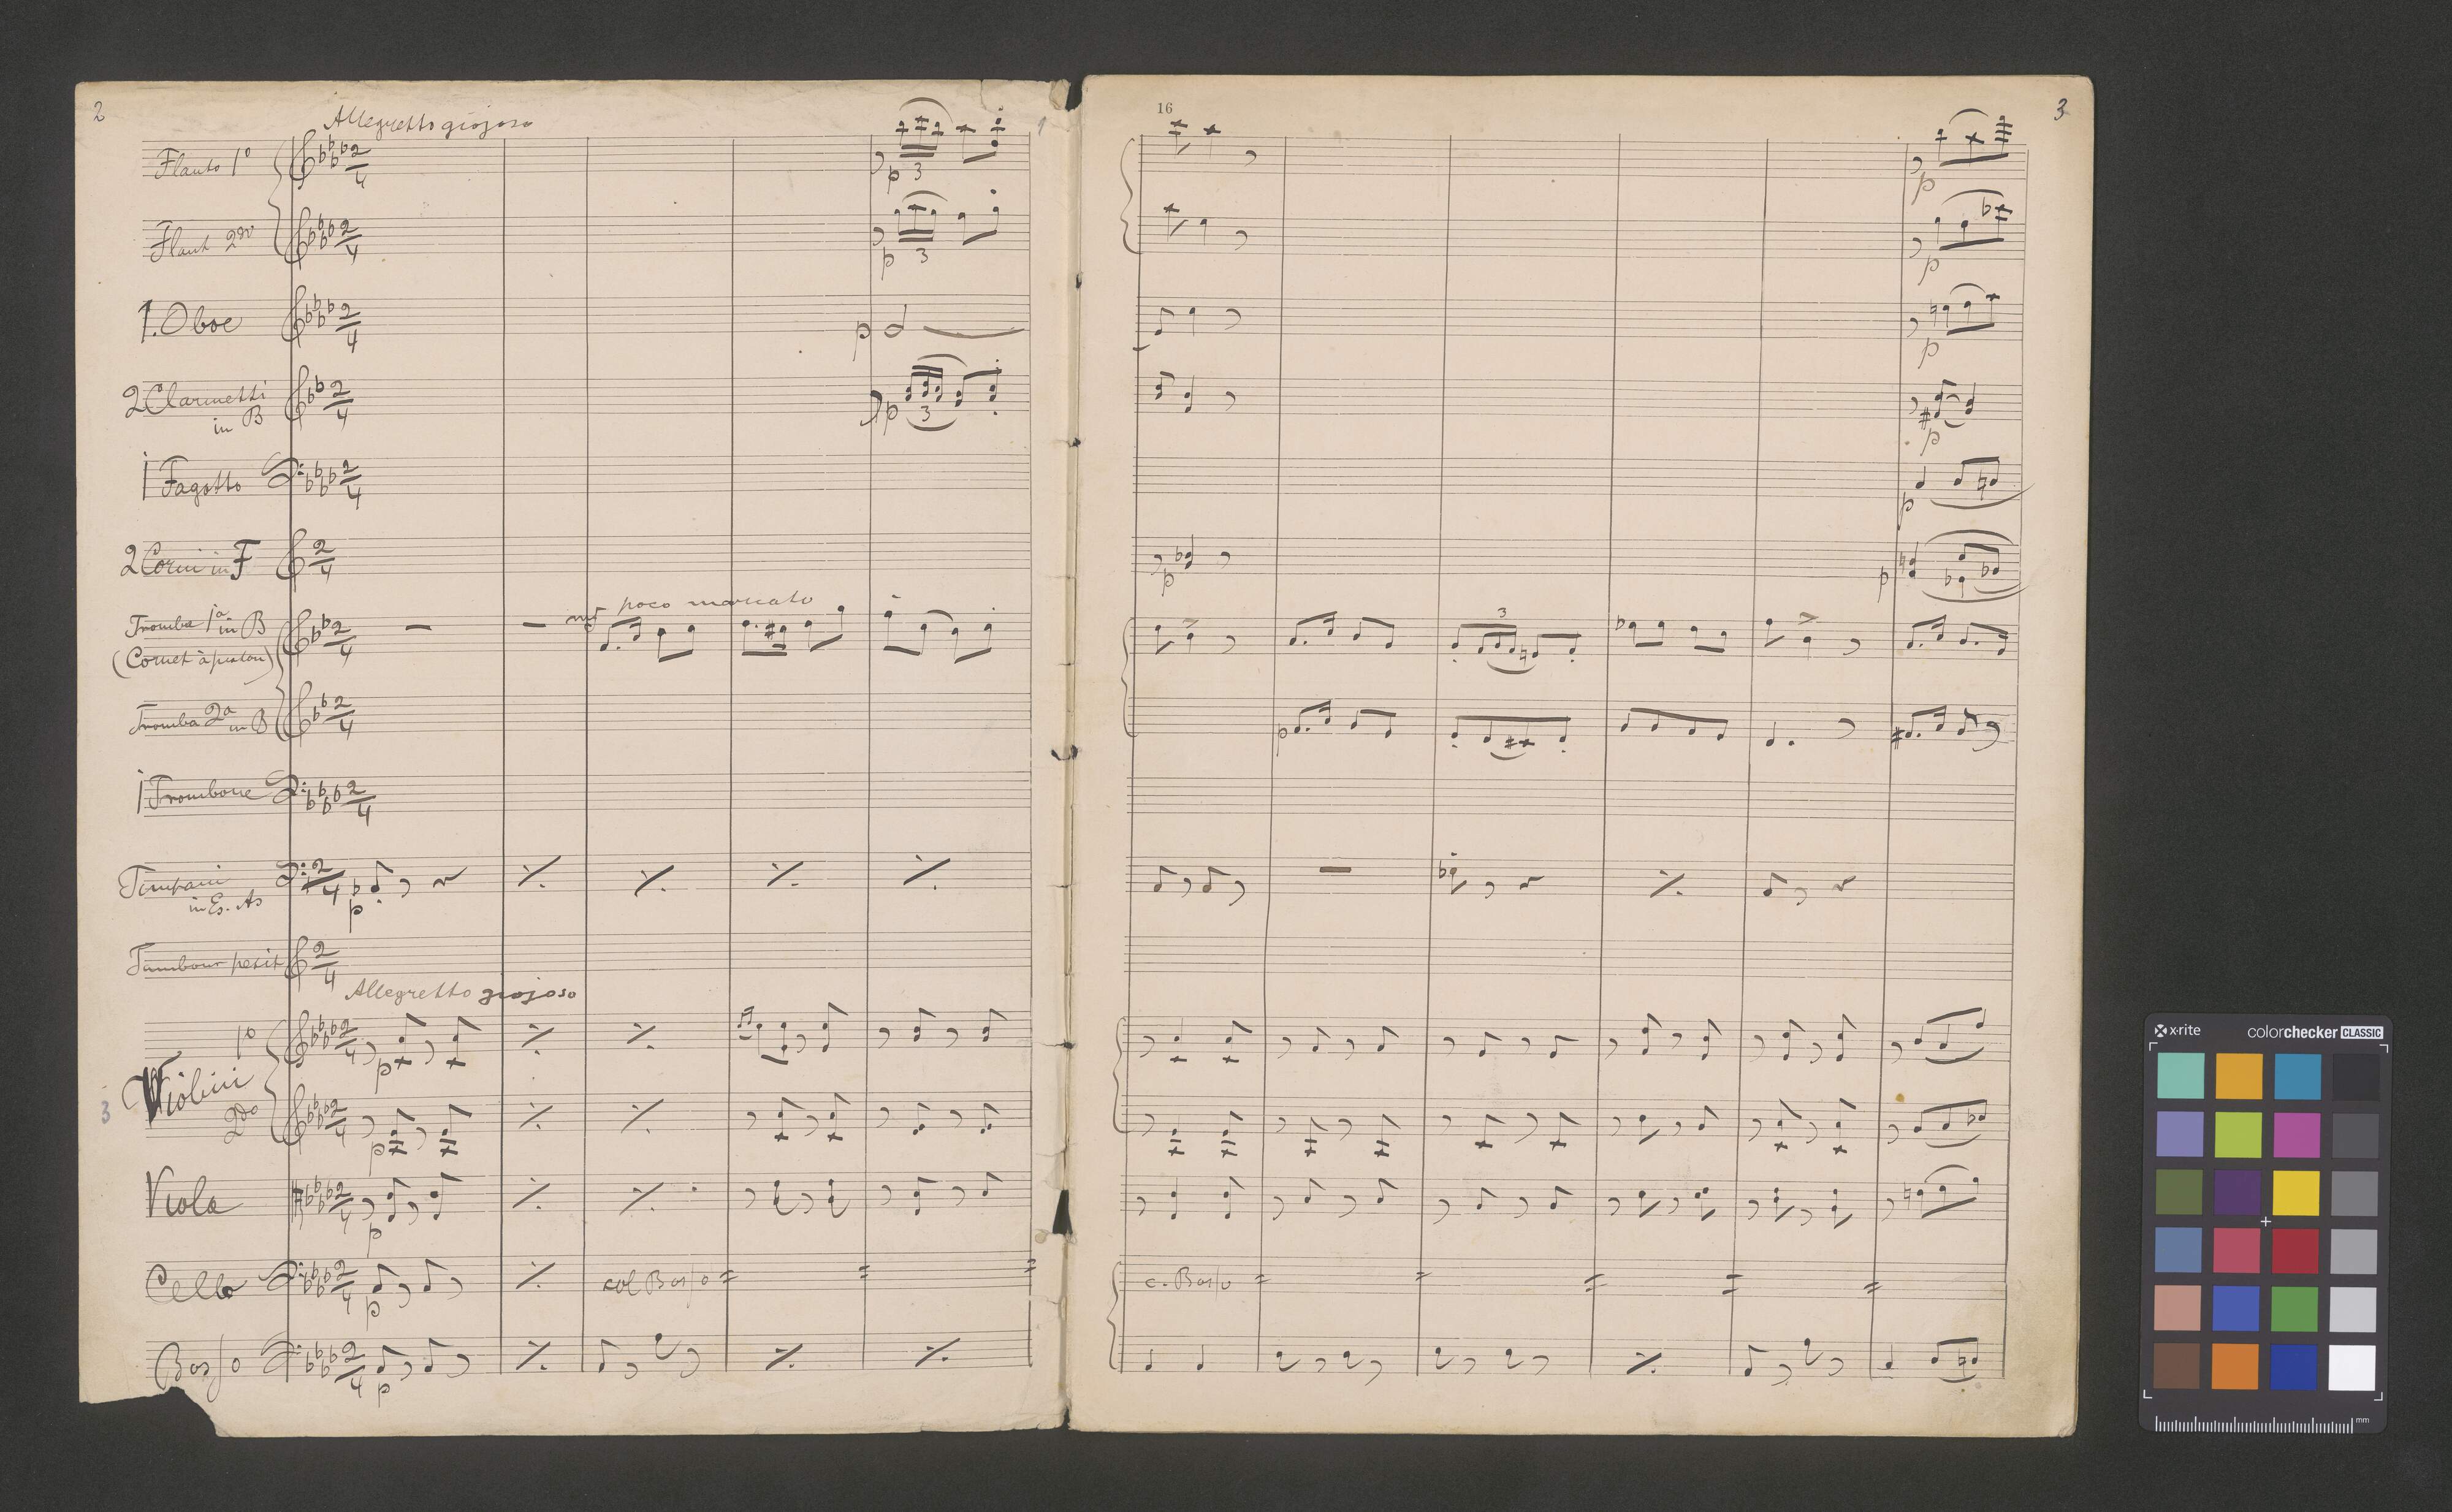 2
Allegretto giojoso
Flauto 1º
Flaut 2do
1. Oboe
2 Clarinetti
in B
1 Fagotto
2 Corni in F
Tromba 1a in B
(Cornet à piston)
mf poco marcato
Tromba 2a in B
1 Trombone
Timpani
in Es. As
Tambour petit
Allegretto giojoso
Violini
1º
2do
3
Viola
Cello
col Basso
Basso
16
3
c. Basso
x-rite
colorchecker CLASSIC
mm